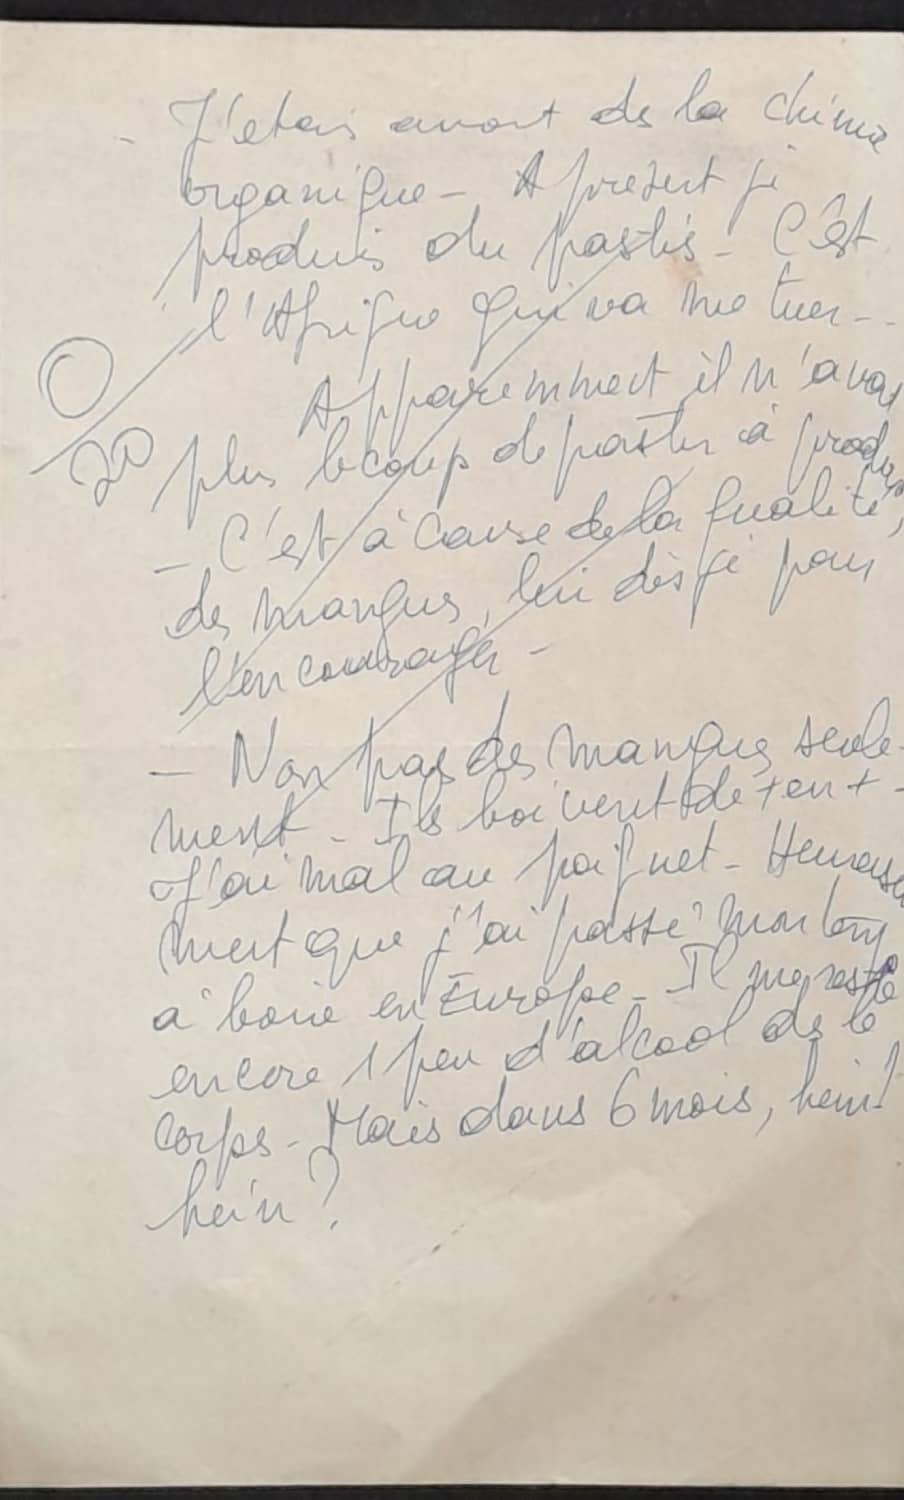 - J'etais avant de la chimie
organique - A présent je
produis du pastis - C'est
l'Afrique qui va me tuer - -
Apparemment il n'avait
plus bcoup de pastis à produire
- C'est à cause de la qualité
des mangues, lui dis je pour
l'encourager -
- Non pas des mangues seule-
ment - Ils boivent
J'ai mal au poignet - Heureuse
ment que j'ai passé mon temps
à boire en Europe - Il me reste
encore 1 peu d'alcool ds le
corps - Mais dans 6 mois, hein!
hein?